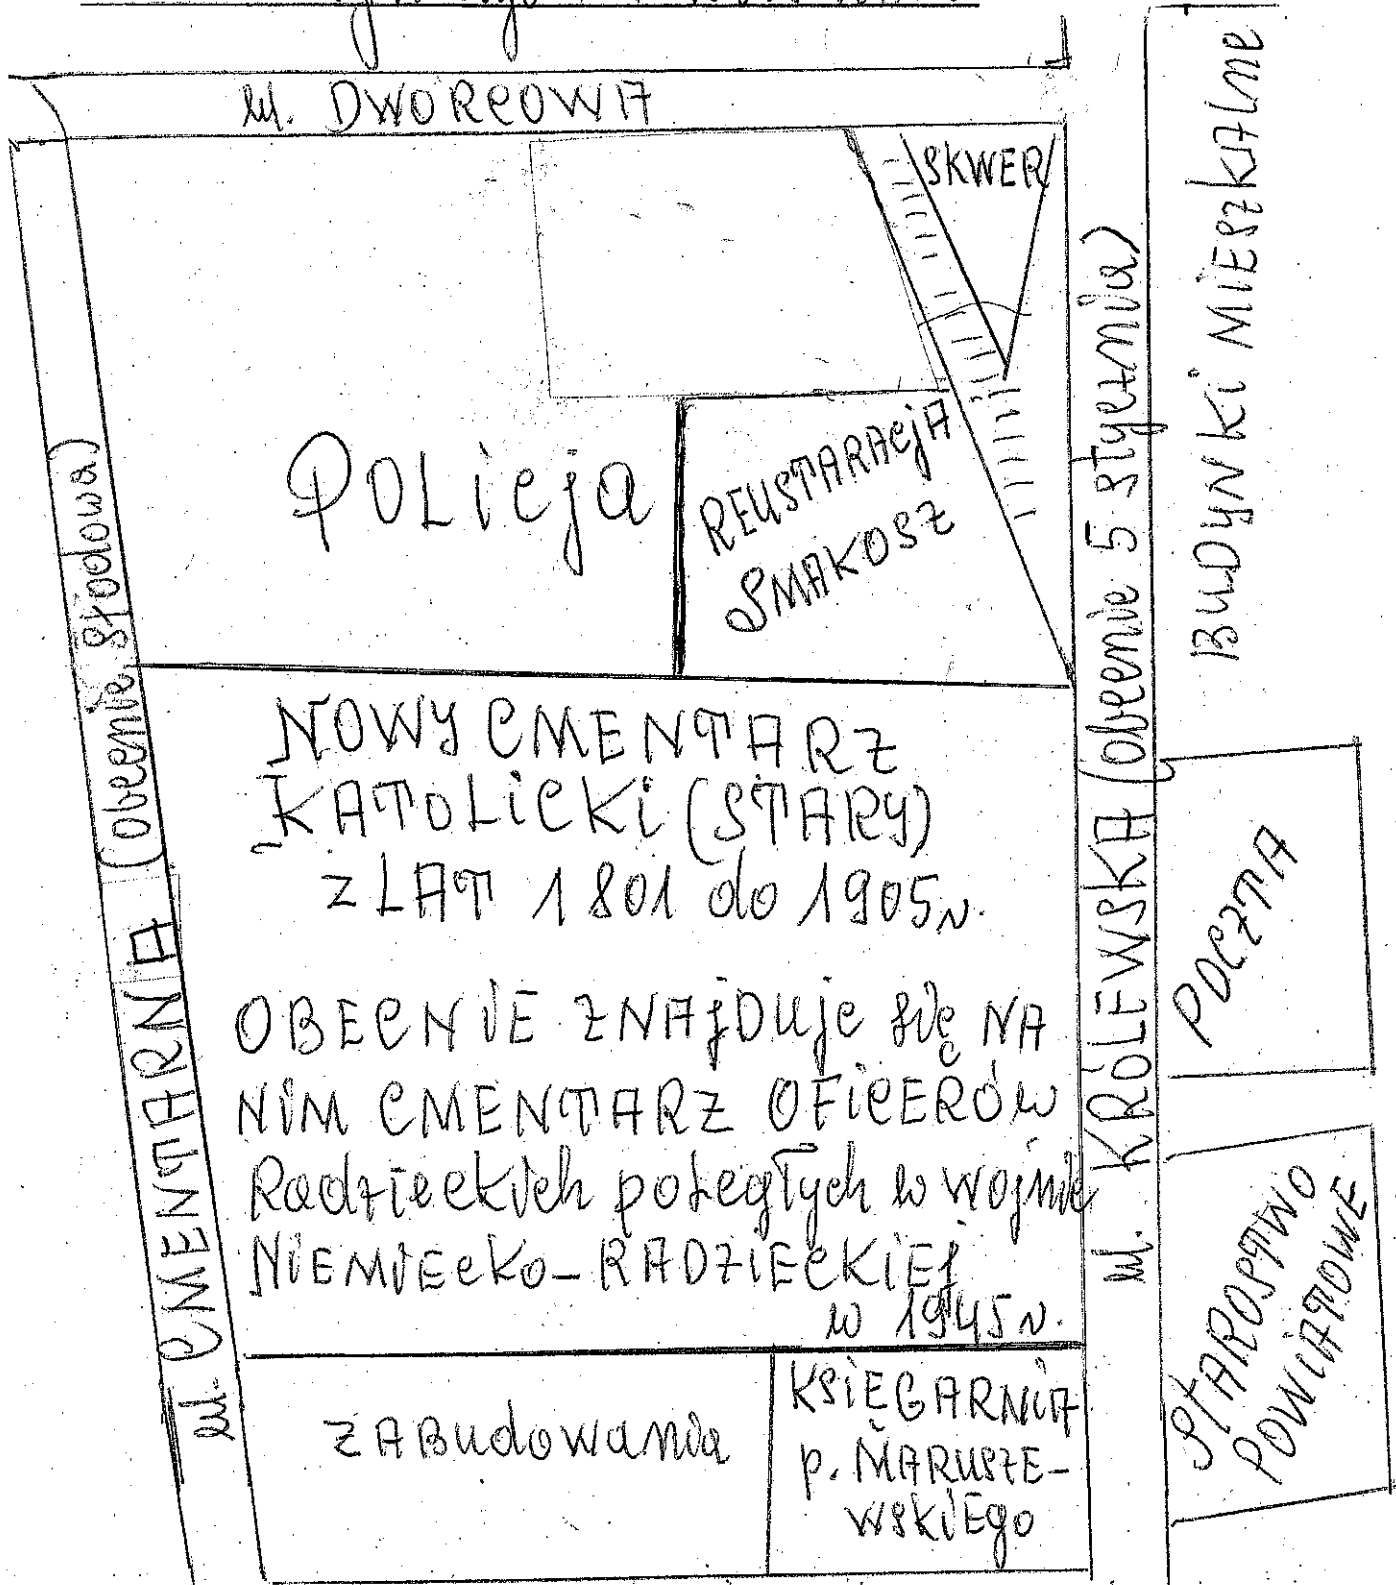 ul. DWORCOWA
SKWER
POLicja
REUSTARACJA
SMAKOSZ
NOWY CMENTARZ
KATOLICKI (STARY)
z LAT 1801 do 1905 r.
OBECNIE ZNAJDUje się NA
NIM CMENTARZ OFICERÓW
Radzieckich poległych w wojnie
NIEMIECKO-RADZIECKIEJ
w 1945 r.
ZABudowania
KSIĘGARNIA
p. MARUSZE-
WSKIEgo
ul. CMENTARNA (obecnie, Słodowa)
ul. KRÓLEWSKA (obecnie 5 stycznia)
BUDYNKI MIESZKALne
POCZTA
STAROSTWO
POWIATOWE